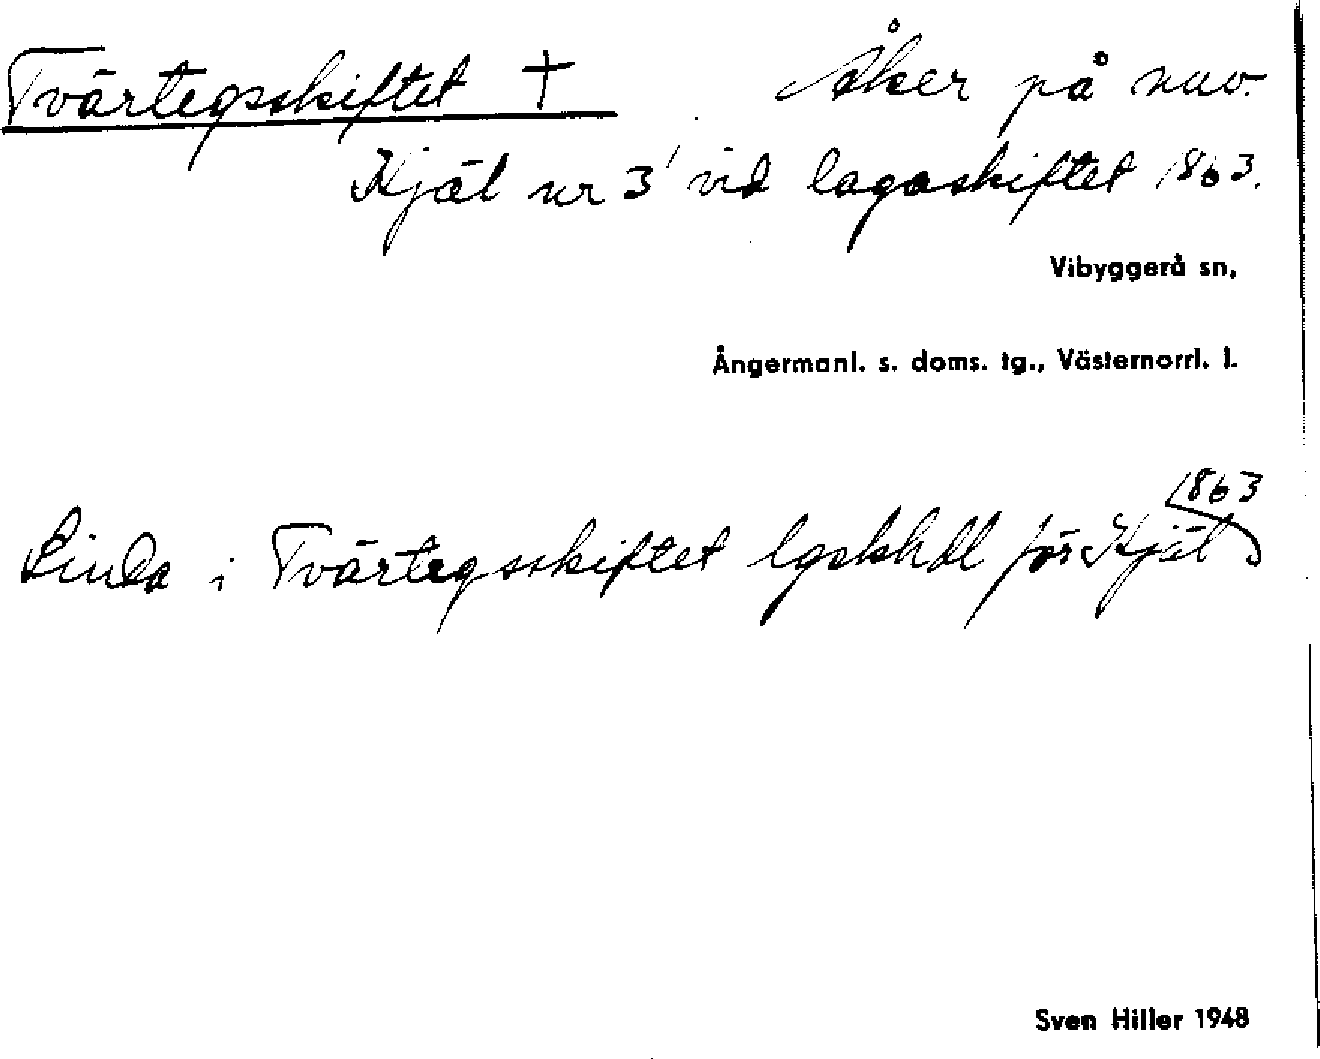 Tvärtegsskiftet † Åker på nuv.
Kjäl nr 3' vid lagaskiftet 1863.
Vibyggerå sn,
Ångermanl. s. doms. tg., Västernorrl. l.
1863
Linda i Tvärtegsskiftet lgskhdl för Kjäl
Sven Hiller 1948